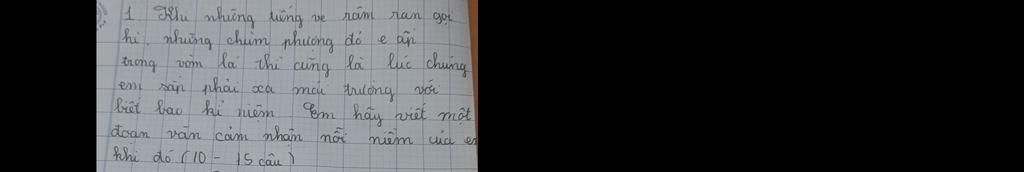 1. Khi những tiếng ve râm ran gọi
hè, những chùm phượng đỏ e ấp
trong vòm lá thì cũng là lúc chúng
em sắp phải xa mái trường với
biết bao kỉ niệm. Em hãy viết một
đoạn văn cảm nhận nỗi niềm của em
khi đó (10 - 15 câu)